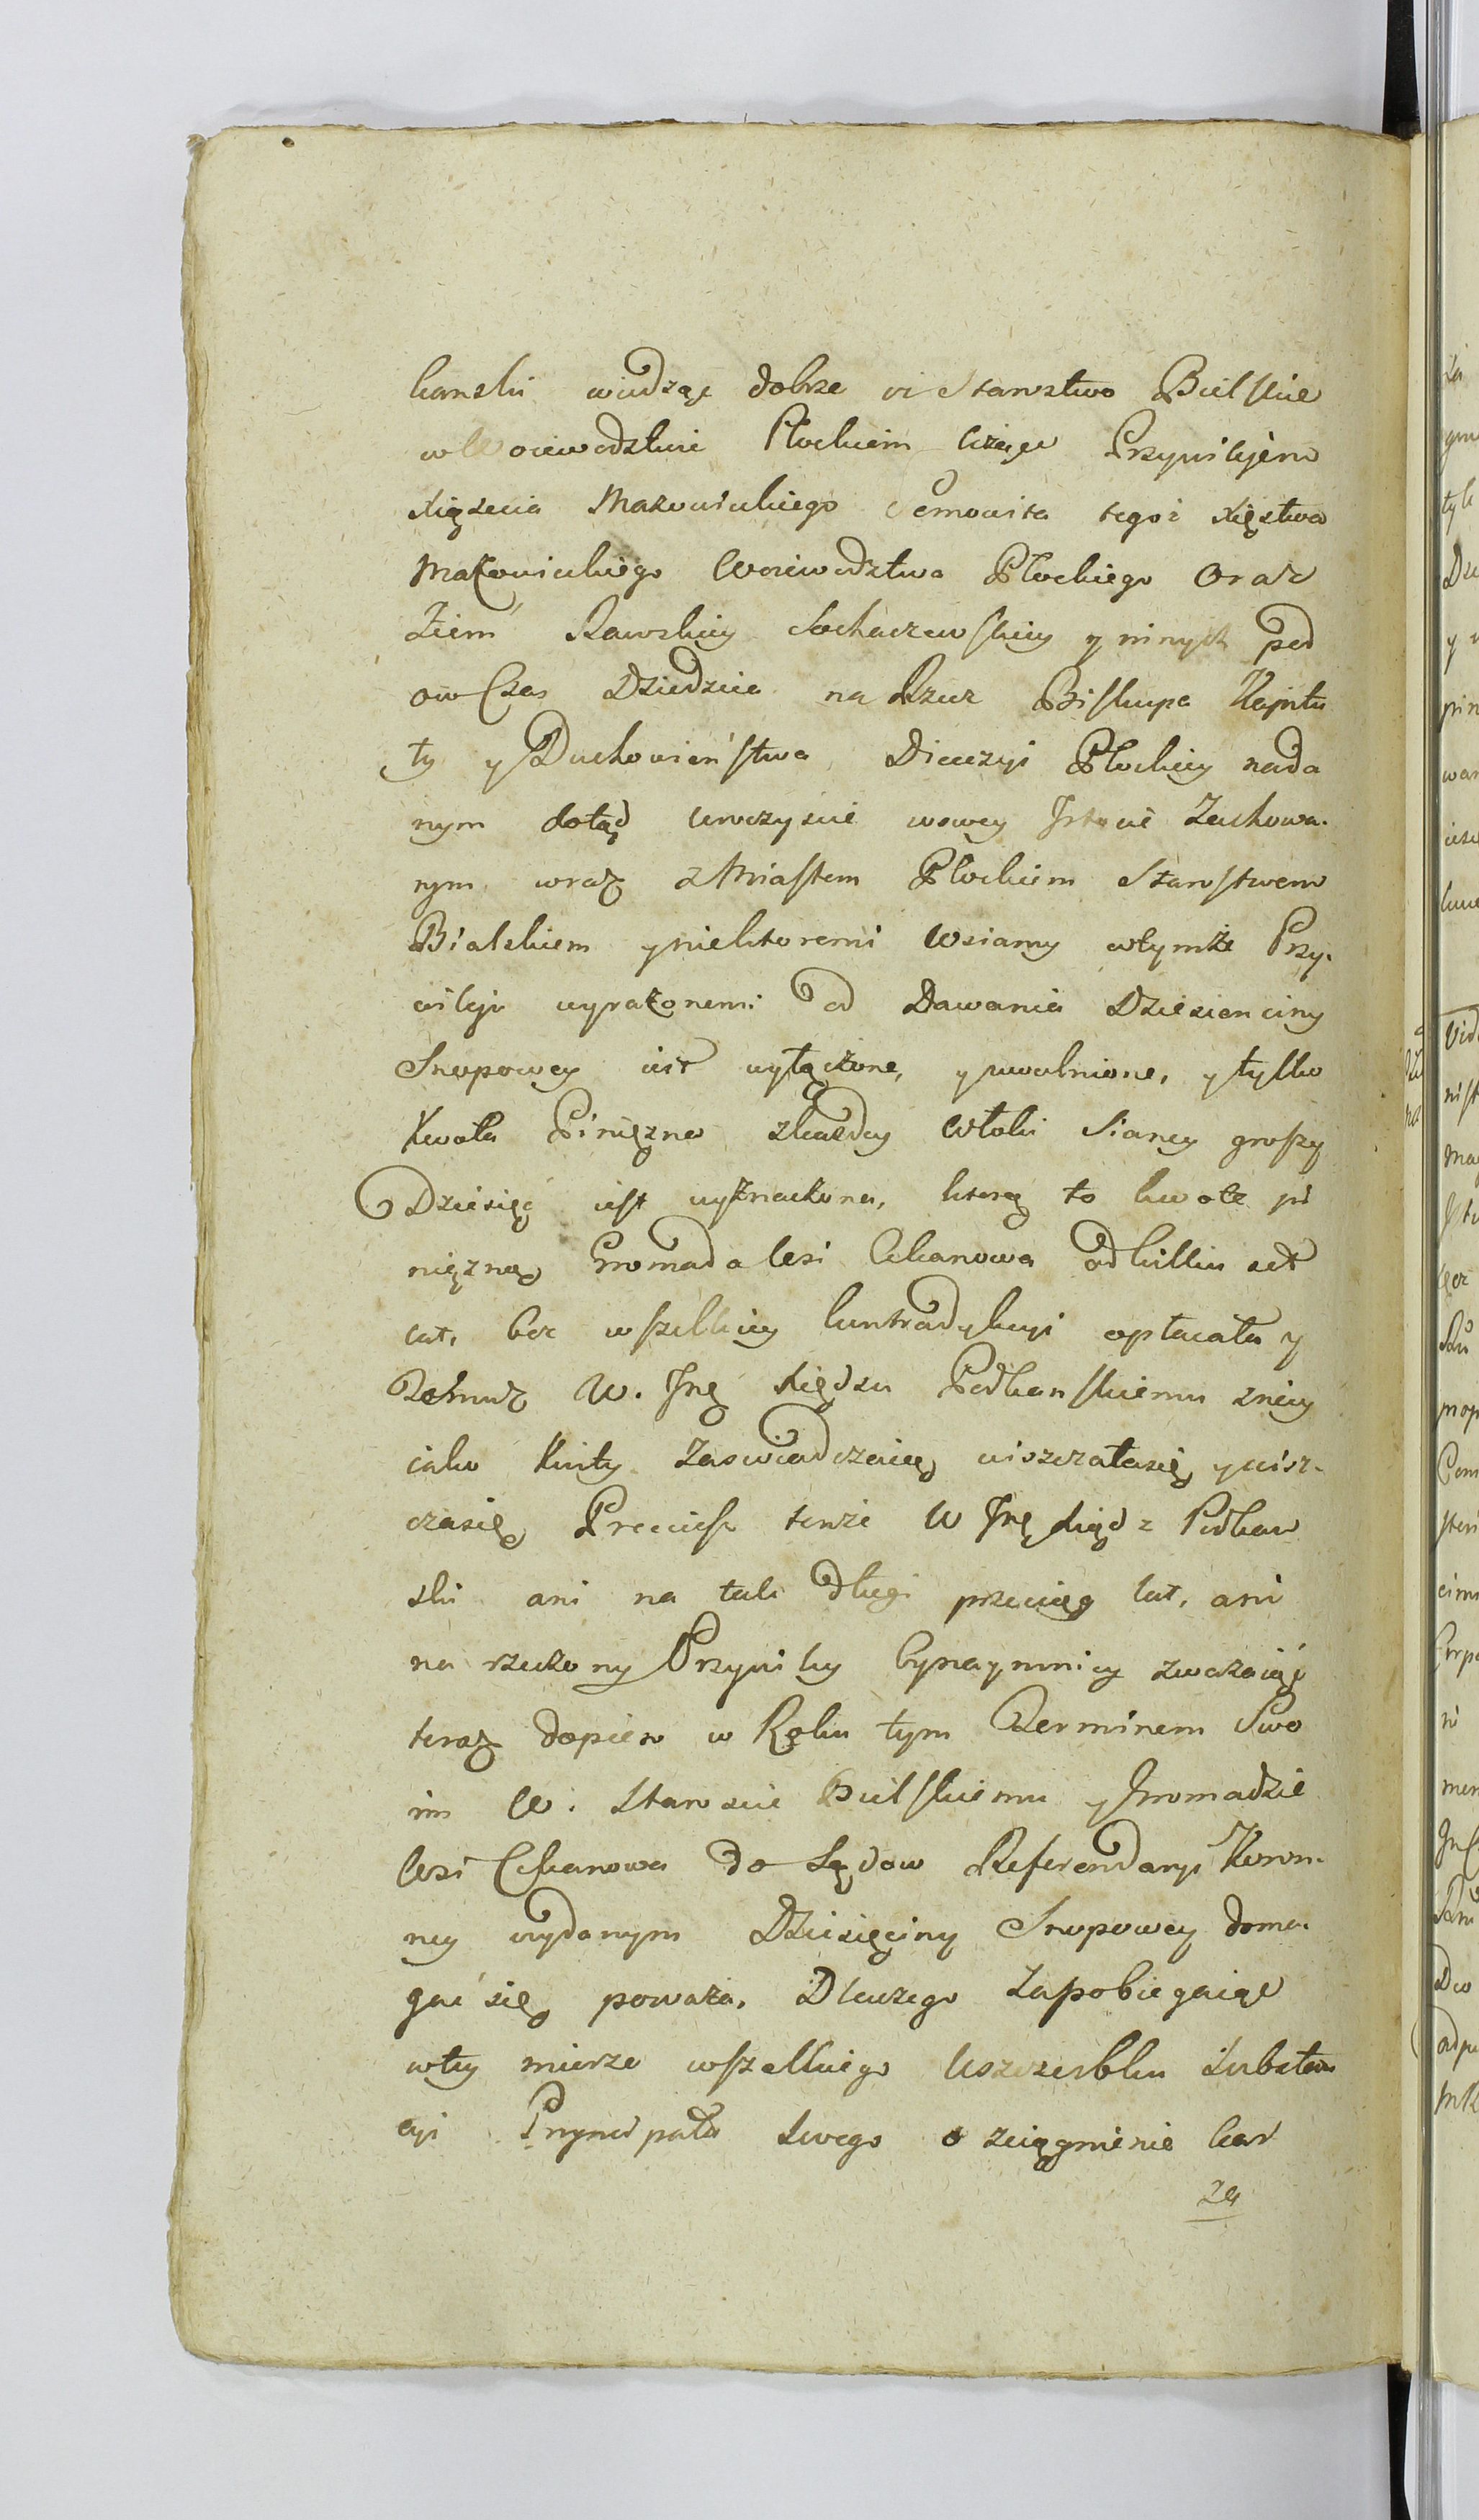 kanski wiedząc dobrze iż Starostwo Bielskie
w Woiewodztwie Płockiem leżące Przywilejem
Xiążęcia Mazowieckiego Semowita tegoż Xięstwa
Mazowieckiego Woiewodztwa Płockiego Oraz
Ziem Rawskiey Sochaczewskiey y innych pod
ow Czas Dziedzica na Rzecz Biskupa Kapitu
ły y Duchowieństwa Diecezyi Płockiey nada
nym dotąd uroczyscie w swey Istocie Zachowa-
nym wraz z Miastem Płockiem Starostwem
Bialskiem y niektoremi Wsiamy w tymże Przy-
wileju wyrażonemi od Dawania Dziesienciny
Snopowey iest wyłączone, y uwolnione, y tylko
Kwota Pinięzna z każdey Włoki Sianey groszy
Dziesięć iest wyznaczona, ktorą to kwotę pi
niężną Gromada Wsi Cekanowa od killku set
lat, bez wszelkiey kontradykcyi opłacała y
Rokrocz W. Jmć Xiędzu Podkanskiemu z niey
iako Kwity Zaswiadczaią uiszczała się y uisz-
cza się Przecież tenże W Jmć Xiądz Podkan
ski ani na tak długi przeciąg lat, ani
na rzeczony Przywiley bynaymniey zważaiąc
teraz dopiero w Roku tym Terminem Swo
im W. Staroscie Bielskiemu y Gromadzie
Wsi Cekanowa do Sądow Referendaryi Koron-
ney wydanym Dziesięciny Snopowey doma-
gać się poważa, Dlaczego Zapobiegaiąc
w tey mierze wszelkiego Uszczerbku Substan
cyi Pryncypała Swego o zciągnienie kar
za